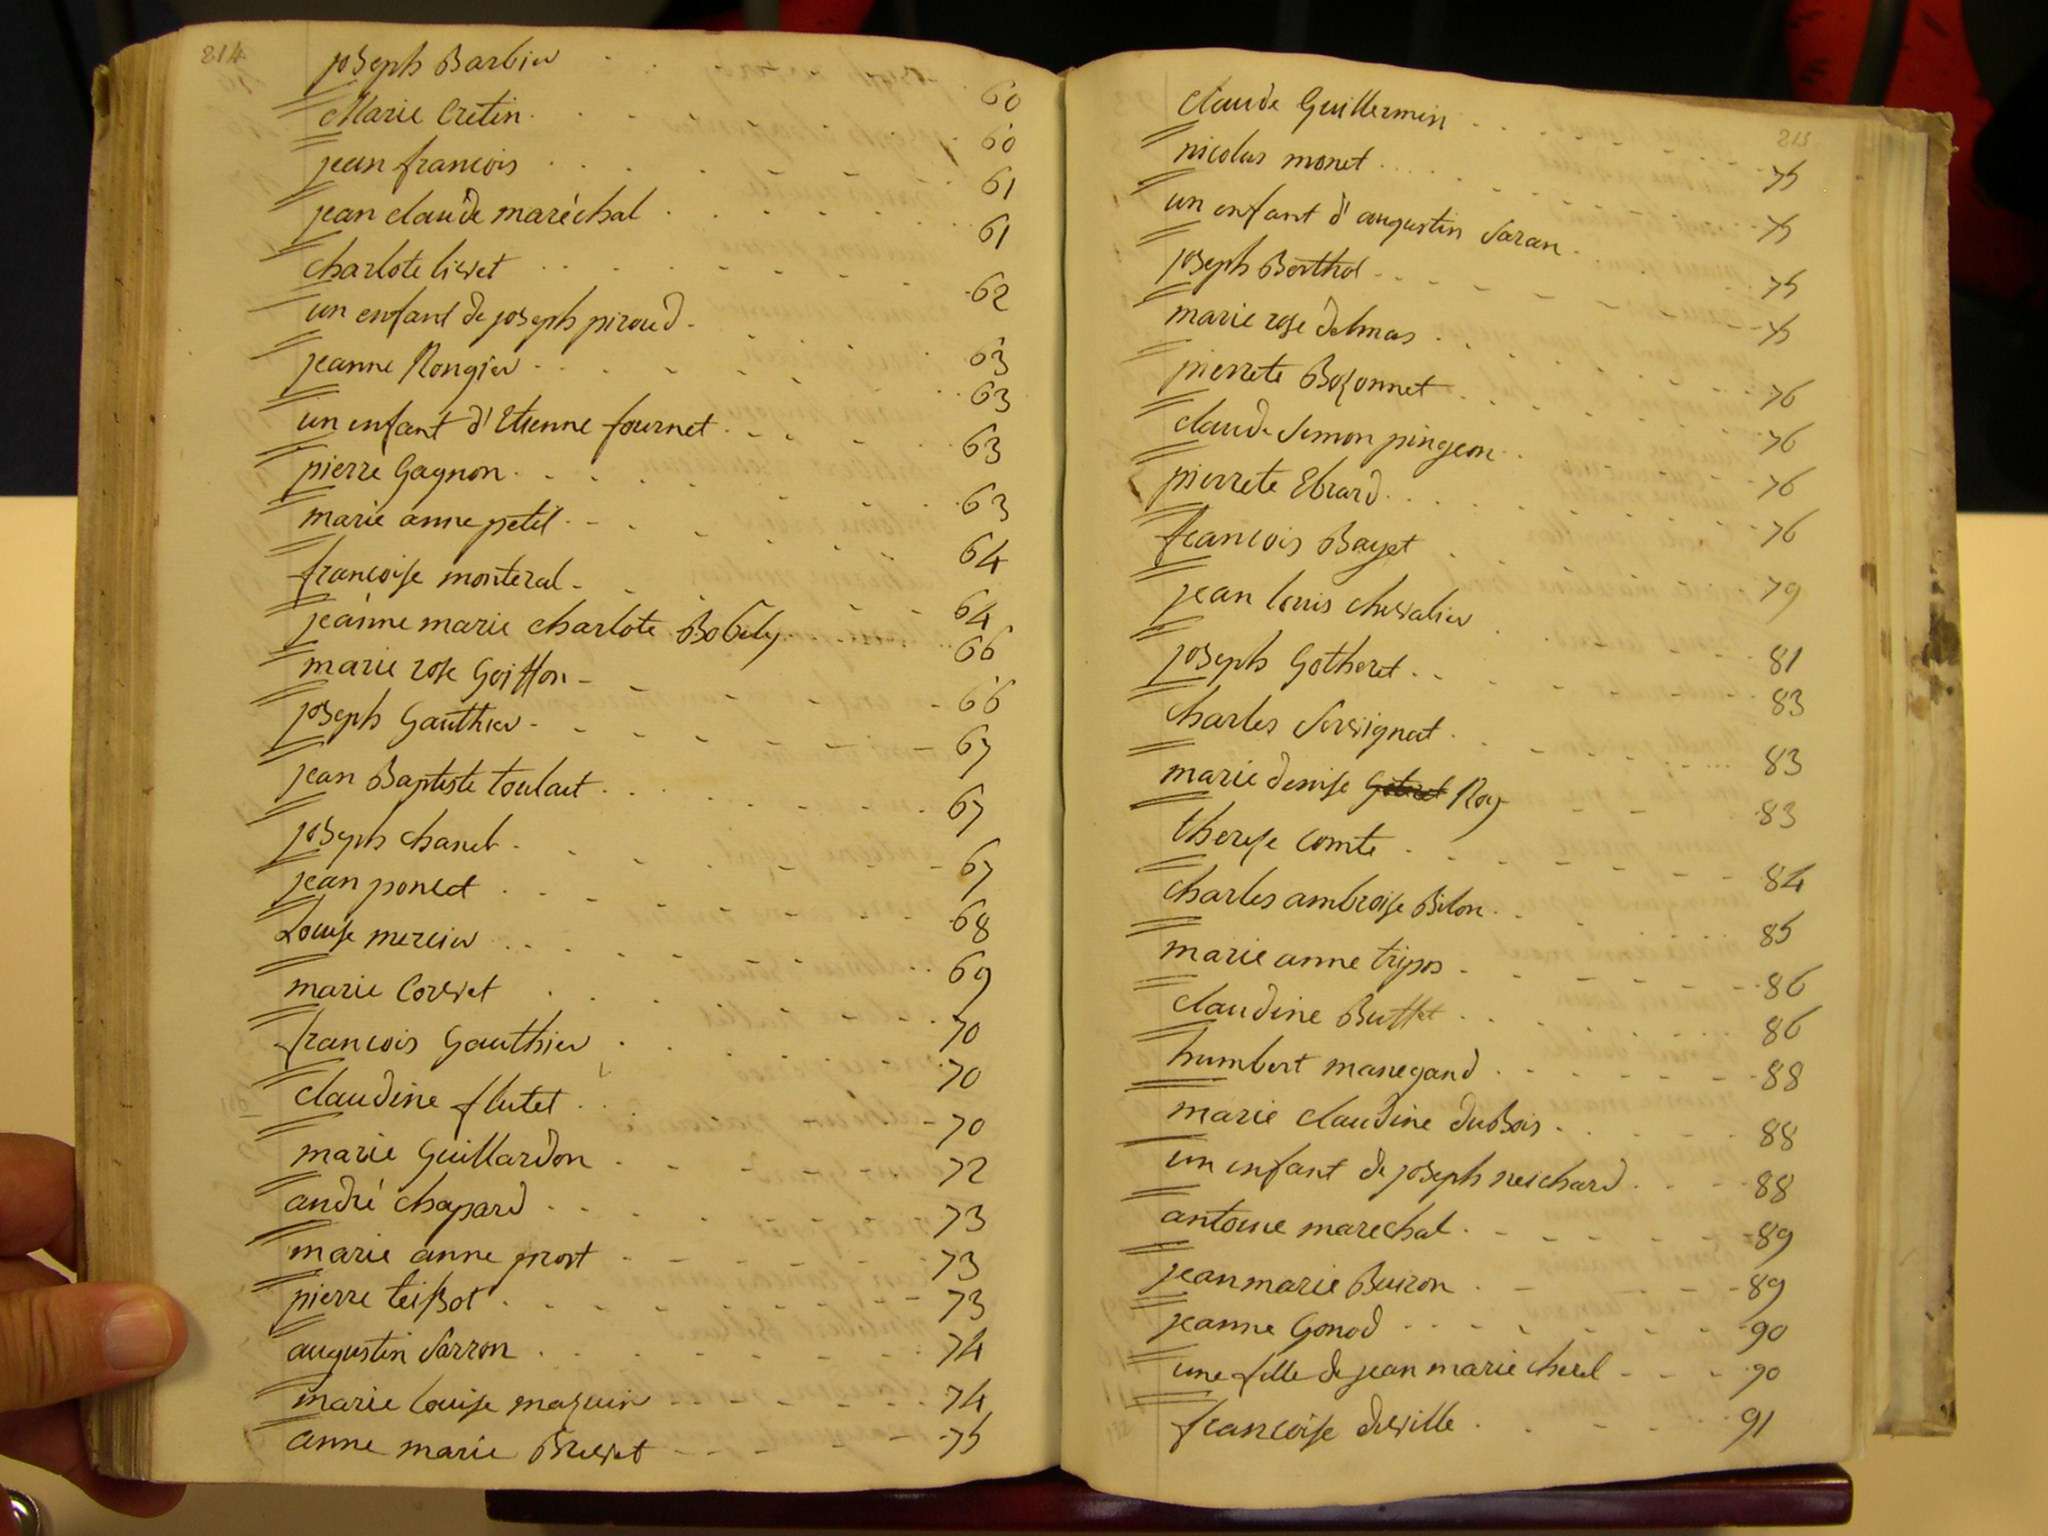 214
joseph Barbier 60
Marie Cretin 60
jean francois 61
jean claude maréchal 61
charlote livet 62
un enfant de joseph piroud 63
jeanne Rongier 63
un enfant d'Etienne fournet 63
pierre Gagnon 63
marie anne petit 64
francoise monteral 64
jeanne marie charlote Bobely 66
marie rose Goiffon 66
joseph Gauthier 67
jean Baptiste toulait 67
joseph chanel 67
jean poncet 68
Louise mercier 69
marie Corvet 70
francois Gauthier 70
claudine flutet 70
marie Guillardon 72
andré chapard 73
marie anne prost 73
pierre teissot 73
augustin Sarron 74
marie louise mazuir 74
anne marie Brevet 75
215
claude Guillermin 75
nicolas monet 75
un enfant d'augustin Saran 75
joseph Berthol 75
marie rose delmas 76
pierrete Bozonnet 76
claude Simon pingeon 76
pierrete Ebrard 76
francois Bayet 79
jean louis chevalier 81
joseph Gotheret 83
charles Servignat 83
marie denise Roy 83
therese comte 84
charles ambroise Bilon 85
marie anne tripos 86
claudine Buffet 86
humbert manegand 88
marie claudine duBois 88
un enfant de joseph neschard 88
antoine marechal 89
jean marie Buiron 89
jeanne Gonod 90
une fille de jean marie cherel 90
francoise deville 91